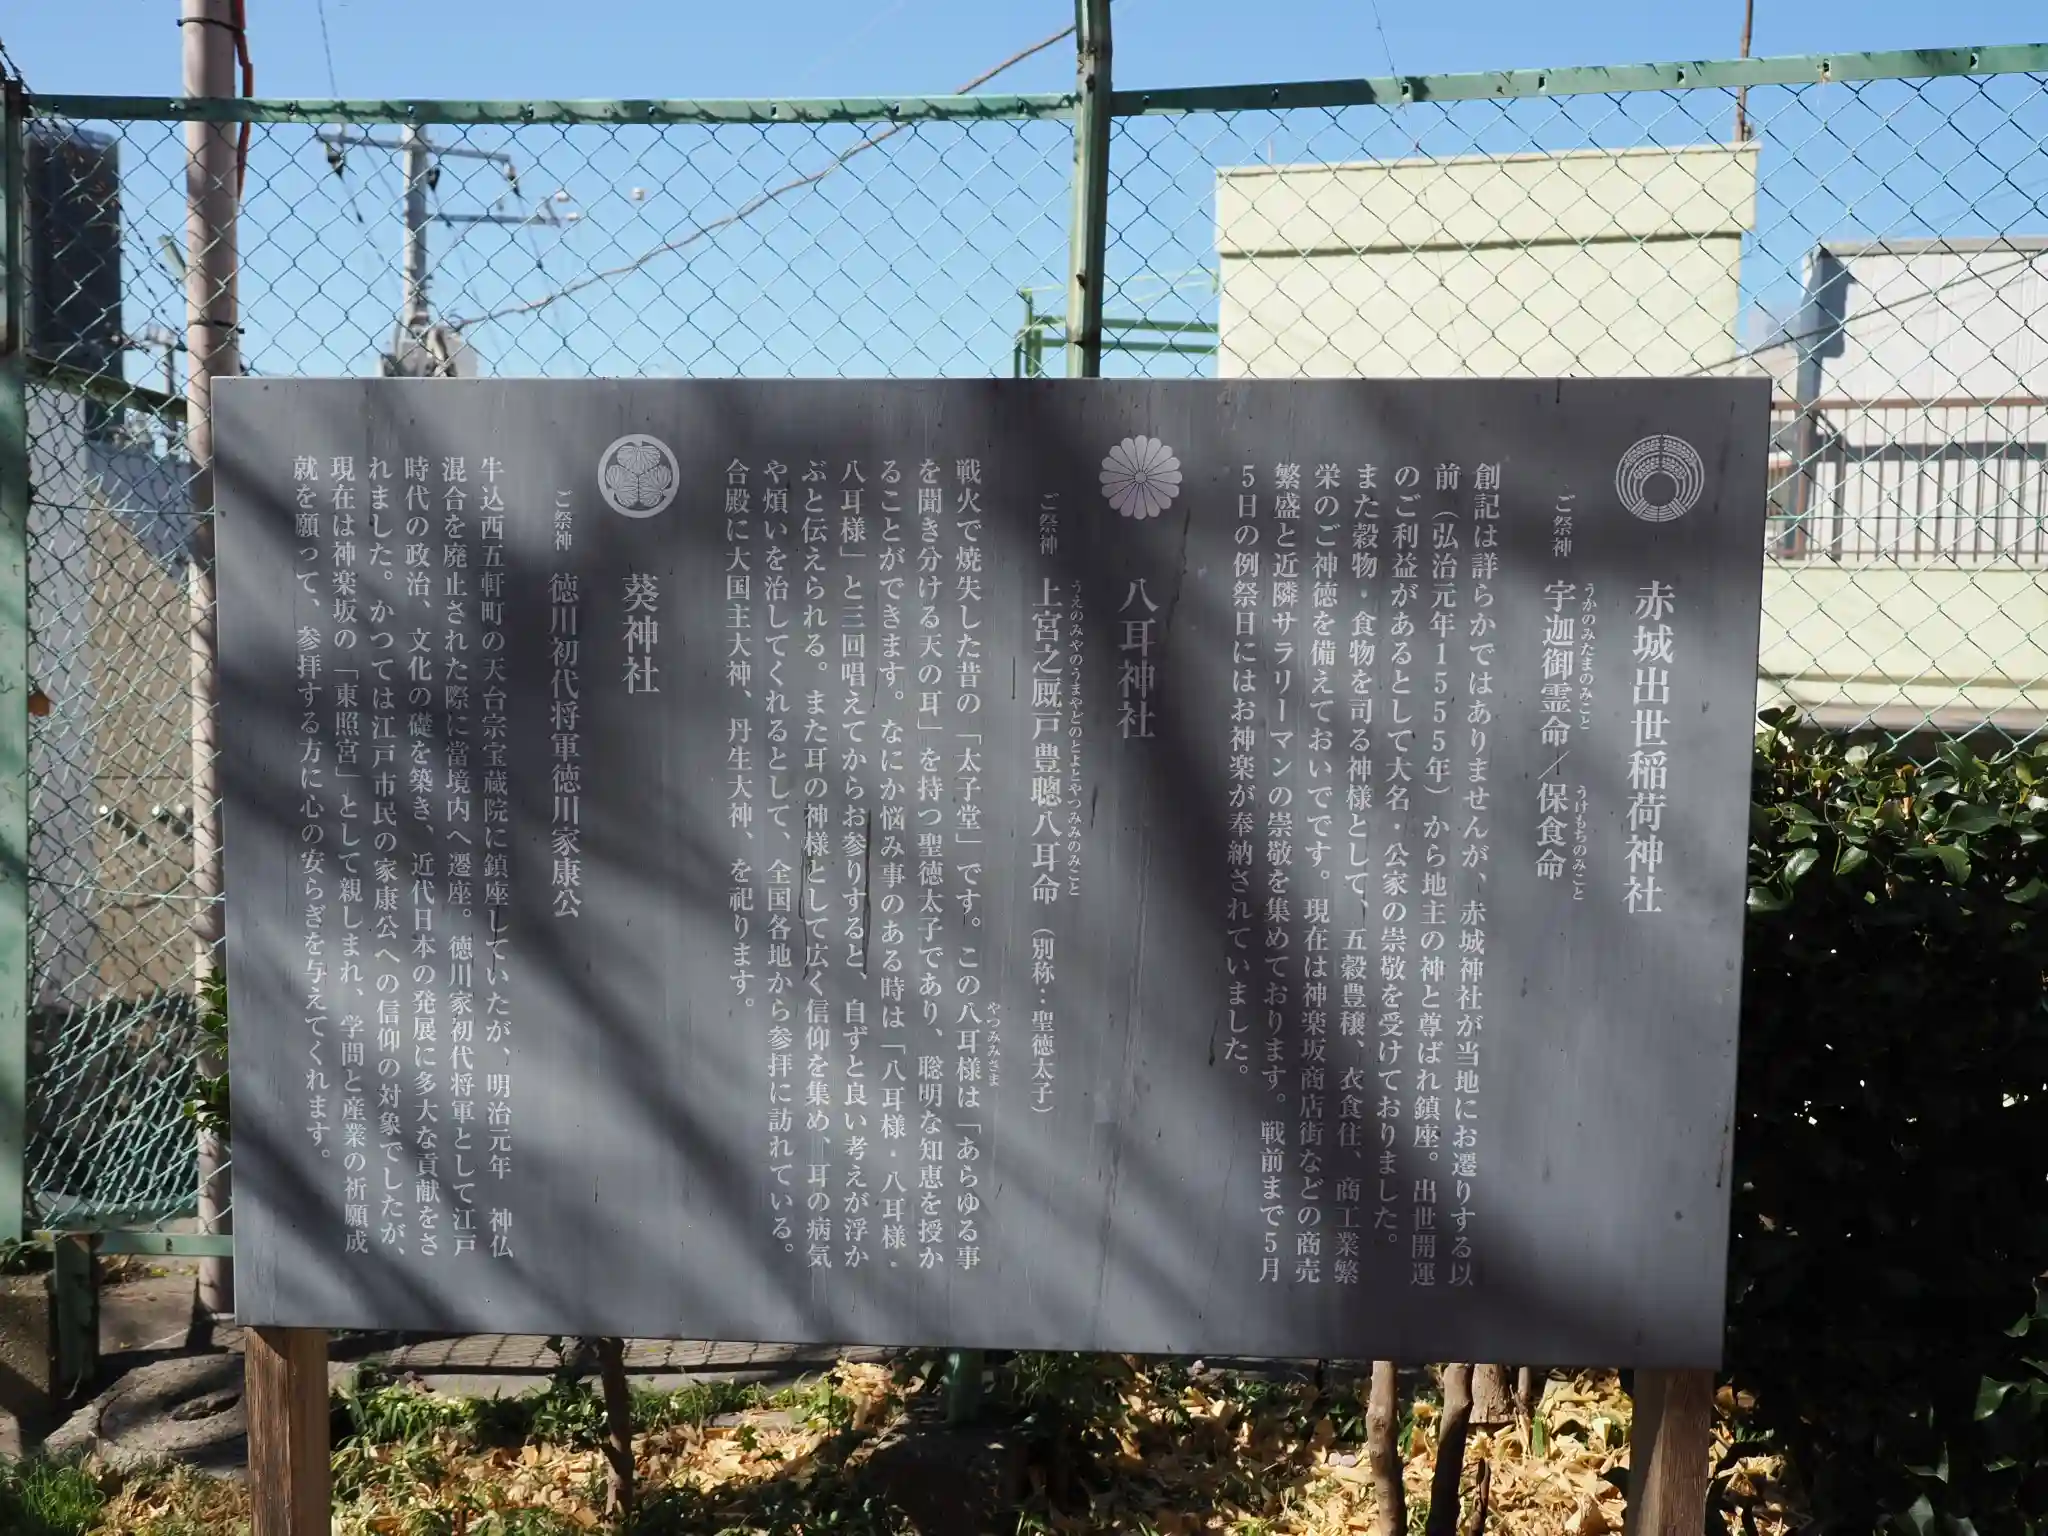 赤城出世稲荷神社
ご祭神 宇迦御霊命／保食命
うかのみたまのみこと
うけもちのみこと
創記は詳らかではありませんが、赤城神社が当地にお遷りする以
前（弘治元年1555年）から地主の神と尊ばれ鎮座。出世開運
のご利益があるとして大名・公家の崇敬を受けておりました。
また穀物・食物を司る神様として、五穀豊穣、衣食住、商工業繁
栄のご神徳を備えておいでです。現在は神楽坂商店街などの商売
繁盛と近隣サラリーマンの崇敬を集めております。戦前まで5月
5日の例祭日にはお神楽が奉納されていました。
八耳神社
ご祭神 上宮之厩戸豊聰八耳命（別称：聖徳太子）
うえのみやのうまやどのとよとやつみみのみこと
戦火で焼失した昔の「太子堂」です。この八耳様は「あらゆる事
やつみみさま
を聞き分ける天の耳」を持つ聖徳太子であり、聡明な知恵を授か
ることができます。なにか悩み事のある時は「八耳様・八耳様・
八耳様」と三回唱えてからお参りすると、自ずと良い考えが浮か
ぶと伝えられる。また耳の神様として広く信仰を集め、耳の病気
や煩いを治してくれるとして、全国各地から参拝に訪れている。
合殿に大国主大神、丹生大神、を祀ります。
葵神社
ご祭神 徳川初代将軍徳川家康公
牛込西五軒町の天台宗宝蔵院に鎮座していたが、明治元年 神仏
混合を廃止された際に當境内へ遷座。徳川家初代将軍として江戸
時代の政治、文化の礎を築き、近代日本の発展に多大な貢献をさ
れました。かつては江戸市民の家康公への信仰の対象でしたが、
現在は神楽坂の「東照宮」として親しまれ、学問と産業の祈願成
就を願って、参拝する方に心の安らぎを与えてくれます。